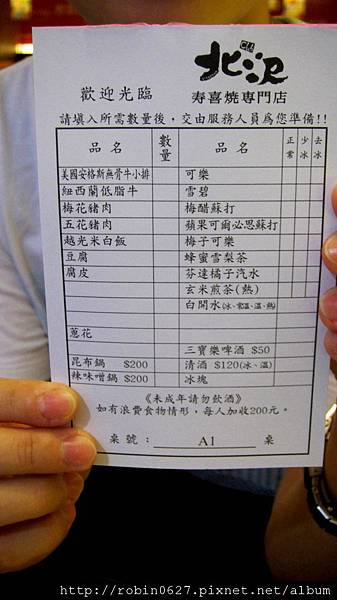 歡迎光臨
北澤
壽喜燒專門店
請填入所需數量後，交由服務人員為您準備!!
品名 數量 品名 正常 少冰 去冰
美國安格斯無骨牛小排 可樂
紐西蘭低脂牛 雪碧
梅花豬肉 梅醋蘇打
五花豬肉 蘋果可爾必思蘇打
越光米白飯 梅子可樂
豆腐 蜂蜜雪梨茶
腐皮 芬達橘子汽水
玄米煎茶(熱)
白開水(冰、常溫、溫、熱)
蔥花
三寶樂啤酒 $50
昆布鍋 $200 清酒 $120(冰、溫)
辣味噌鍋 $200 冰塊
《未成年請勿飲酒》
如有浪費食物情形，每人加收200元。
桌號： A1 桌
http://robin0627.pixnet.net/album